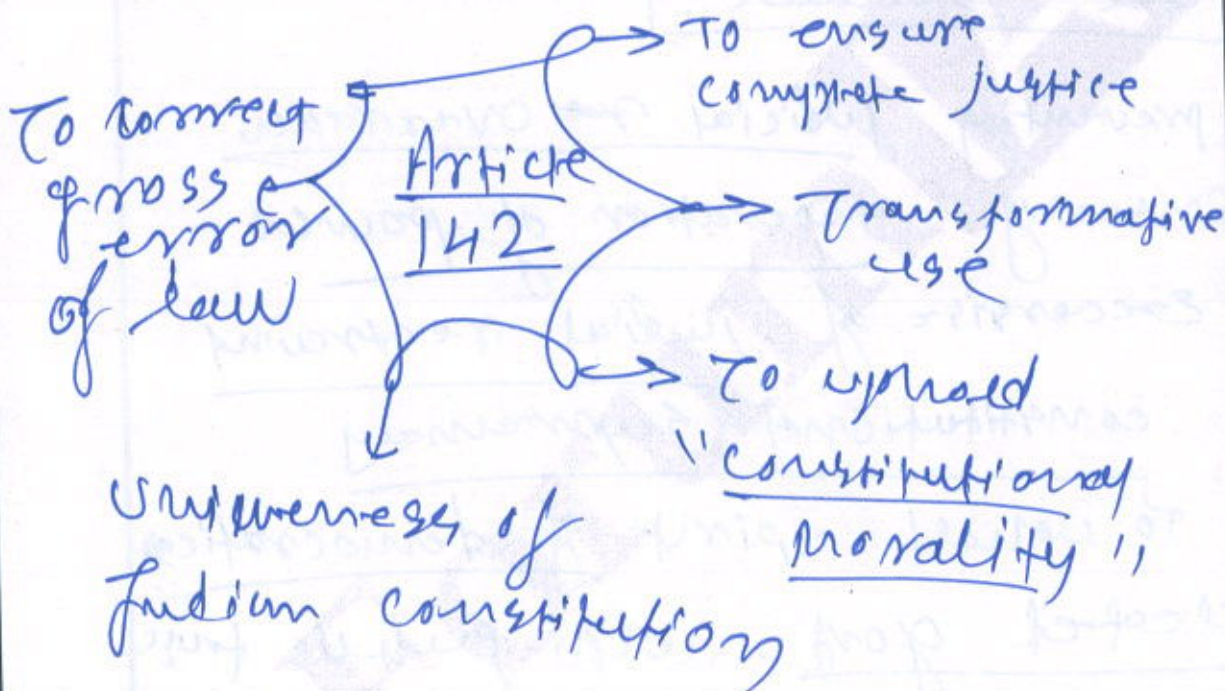 To correct
gross
error
of law
Article
142
To ensure
complete justice
Transformative
use
To uphold
"Constitutional
Morality"
Uniqueness of
Indian constitution